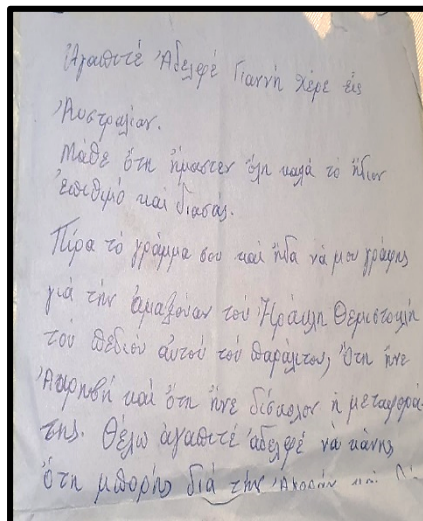 Ἀγαπιτέ Ἀδελφέ Γιαννή χέρε εἰς
Αυστραλίαν.
Μάθε ὅτη ἤμαστεν ὅλη καλά τό ἤδιον
ἐπιθιμό καί διασάς.
Πίρα τό γράμμα σου καί ἤδα νά μου γράφης
γιά τήν ἁμαξούαν τοῦ Ἡράκλη Θεμιστοκλη
τοῦ πεδιοῦ αὐτοῦ τοῦ παράλιτου, Ὅτη ἤνε
Ἀκριβή καί ὅτη ἤνε δίσκολον ἡ μεταφορά
της. Θέλω ἀγαπιτέ ἀδελφέ νά κάνης
ὅτη μπορής διά τήν